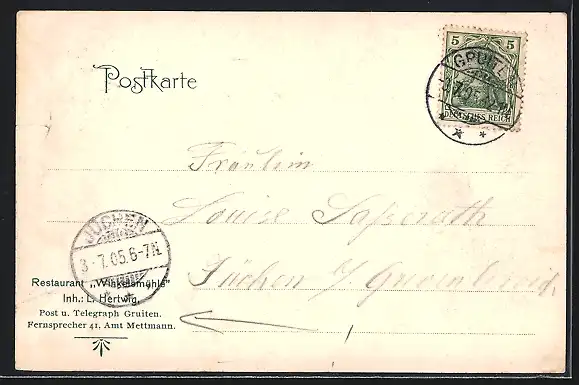 Postkarte
5 5
DEUTSCHES REICH
GRUITEN
Fräulein
Louise Sasserath
Jüchen
JÜCHEN
3.7.05.6-7N.
Restaurant „Winkelsmühle"
Inh.: L. Hertwig.
Post u. Telegraph Gruiten.
Fernsprecher 41, Amt Mettmann.